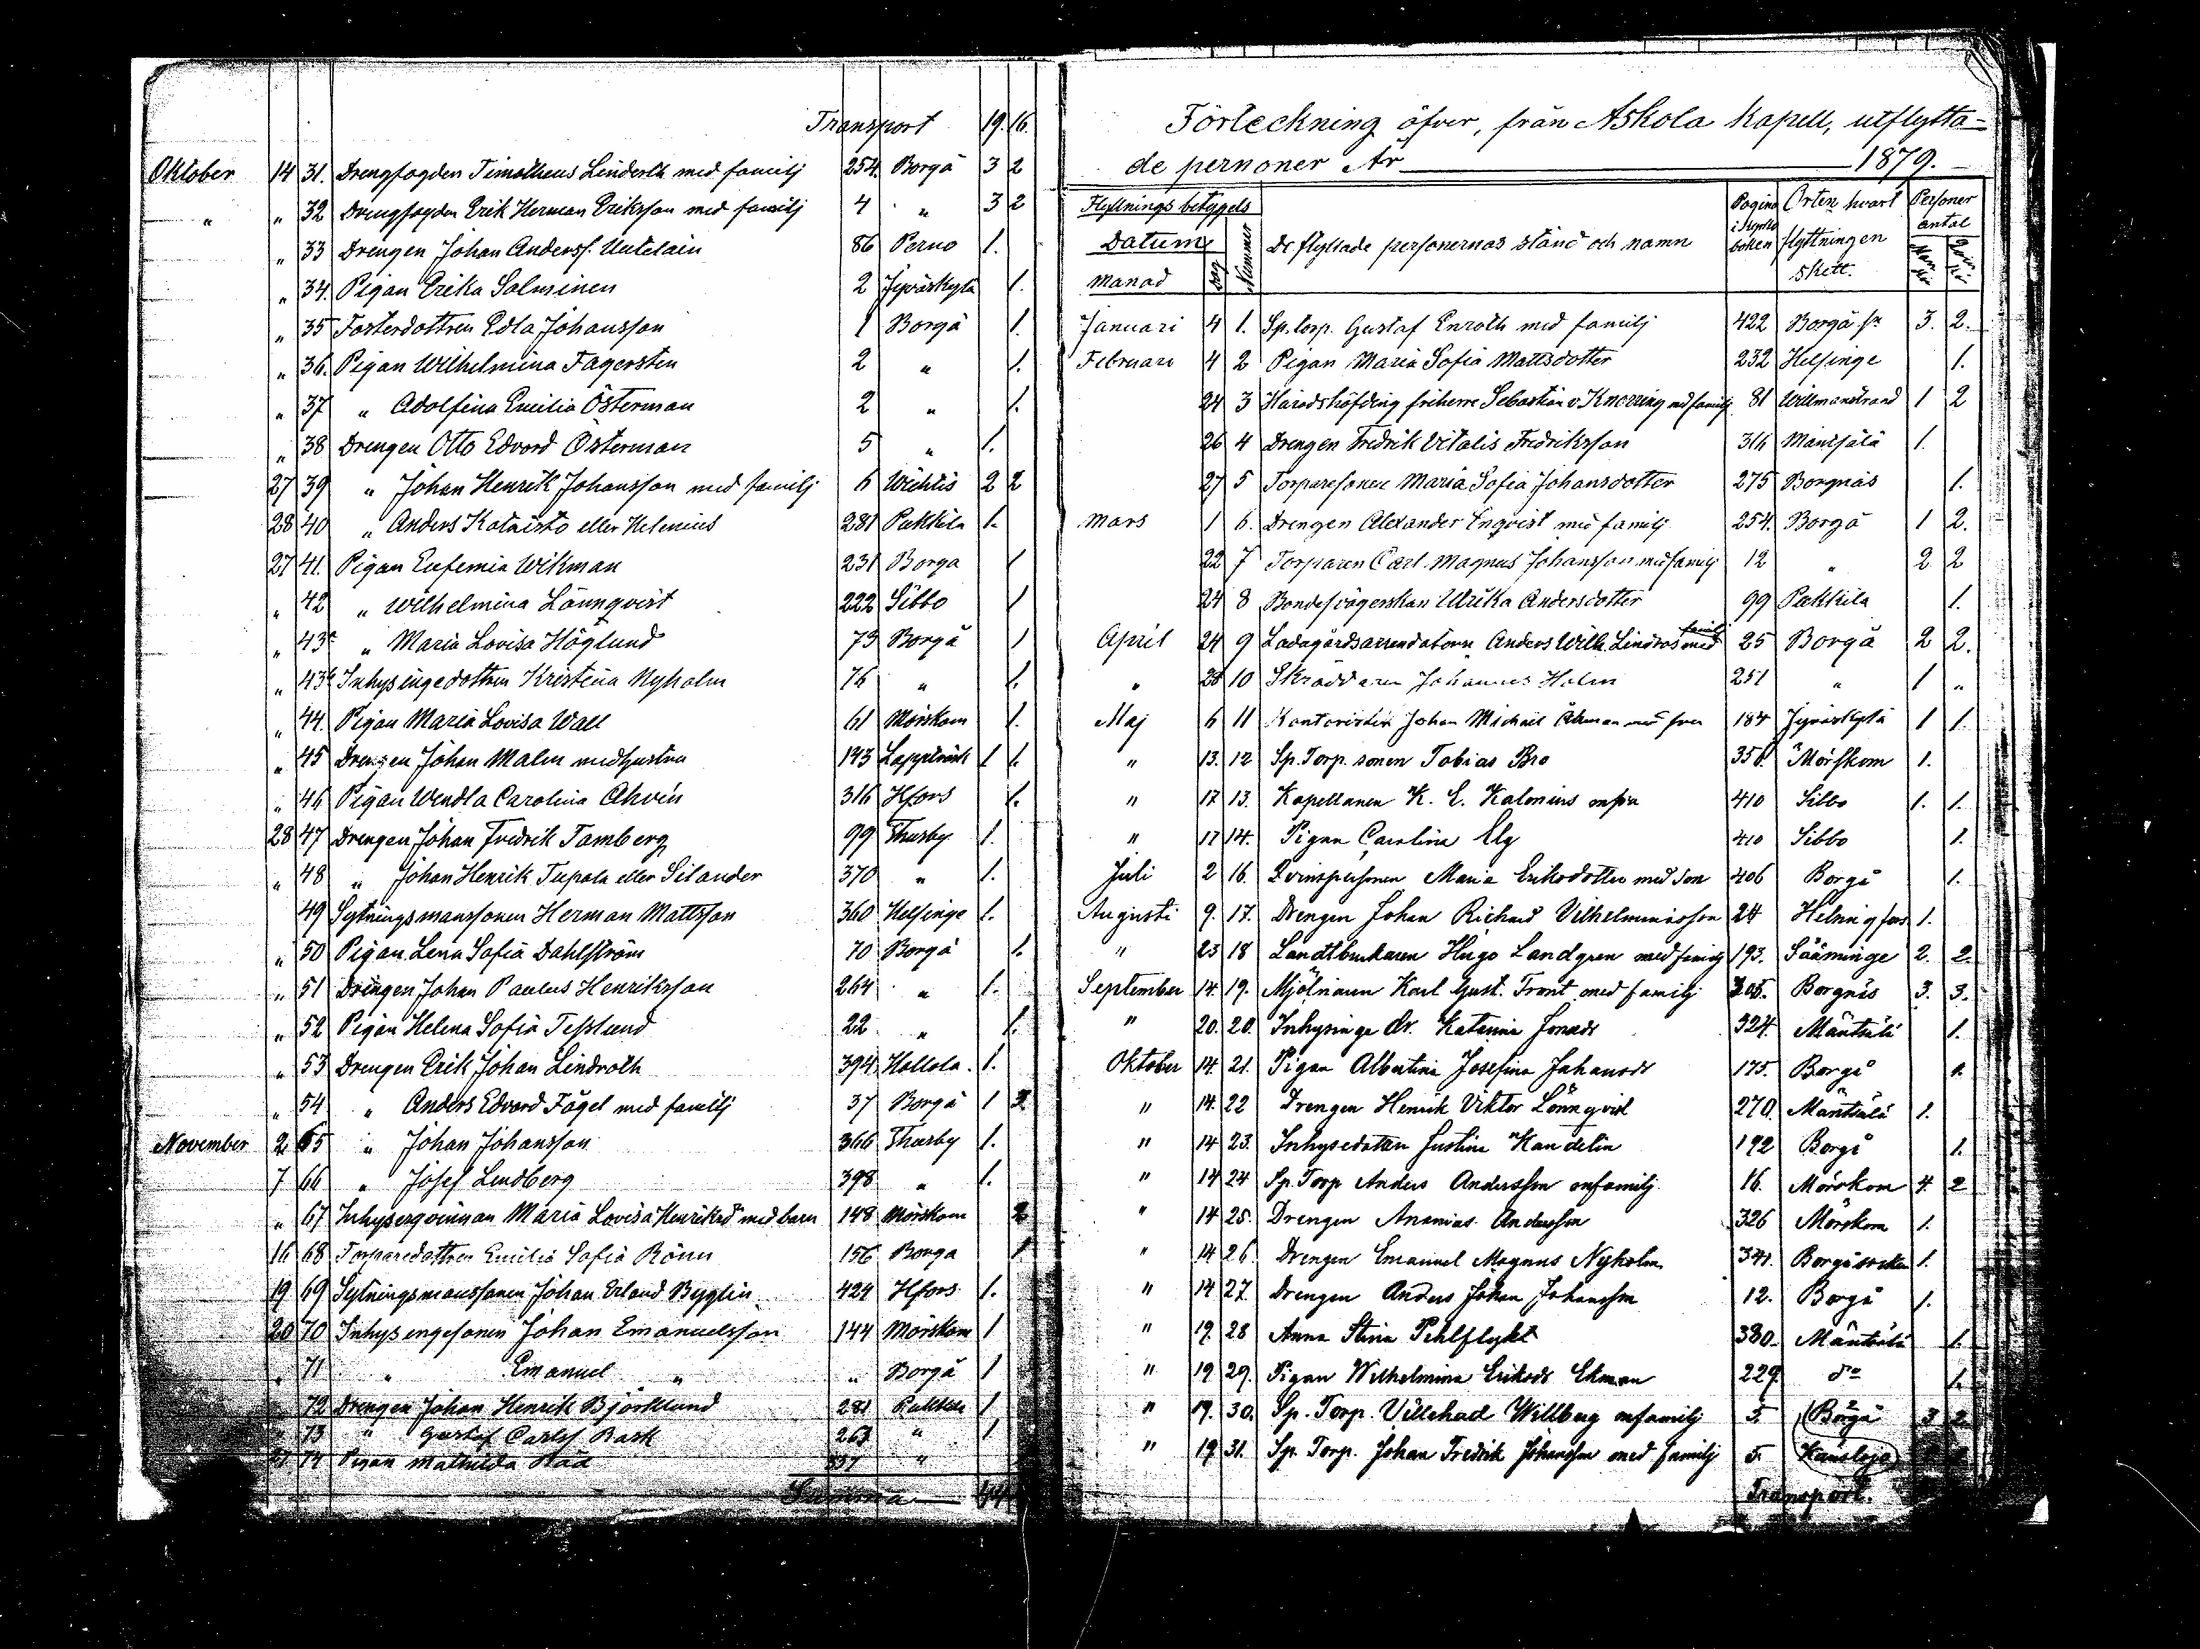 Transport 19. 16.
Oktober 14 31. Drengfogden Timotheus Linderth med familj 254. Borgå 3 2
" " 32 Drengfogden Erik Herman Eriksson med familj 4 " 3 2
" 33 Drengen Johan Anderss. Uutelain 86 Perno 1.
" 34. Pigan Erika Salminen 2 Jyväskylä 1.
" 35 Fosterdottren Edla Johansson 1 Borgå 1.
" 36. Pigan Wilhelmina Fagersten 2 " 1.
" 37 " Adolfina Emilia Österman 2 " 1.
" 38 Drengen Otto Edvard Österman 5 " 1.
27 39 " Johan Henrik Johansson med familj 6 Wichtis 2 2
28 40 " Anders Kotaisto eller Helenius 281 Pukkila 1.
27 41. Pigan Eufemia Wikman 231 Borga 1
" 42 " Wilhelmina Lönnqvist 222 Sibbo 1
" 43a " Maria Lovisa Höglund 73 Borgå 1
" 43b Inhysingedottren Kristina Nyholm 76 " 1.
" 44. Pigan Maria Lovisa Wall 61 Mörskom 1.
" 45 Drengen Johan Malm med hustru 143 Lappträsk 1 1.
" 46 Pigan Wendla Carolina Ahvén 316 Hfors 1.
28 47 Drengen Johan Fredrik Tamberg 99 Thusby 1.
" 48 " Johan Henrik Tupala eller Silander 370 " 1.
49 Sytningsmanssonen Herman Mattsson 360 Helsinge 1.
" 50 Pigan Lena Sofia Dahlström 70 Borgå 1.
" 51 Drengen Johan Paulus Henriksson 264 " 1.
" 52 Pigan Helena Sofia Teslund 22 " 1.
" 53 Drengen Erik Johan Lindroth 394 Hollola. 1.
" 54 " Anders Edvard Fågel med familj 37 Borgå 1 2
November 2 65 " Johan Johansson 366 Thusby 1.
7 66 " Josef Lindberg 398 " 1.
" 67 Inhysesqvinnan Maria Lovisa Henriksd. med barn 148 Mörskom 2
16 68 Torparedottren Emilia Sofia Rönn 156 Borga 1
19 69 Sytningsmanssonen Johan Erland Byglin 424 Hfors 1.
20 70 Inhysingesonen Johan Emanuelsson 144 Mörskom 1
" 71 " Emanuel " " Borgå 1
72 Drengen Johan Henrik Björklund 281 Pukkila 1
73 " Gustaf Carlss. Bask 263 " 1
74 Pigan Mathilda "
Summa 44
Förteckning öfver, från Askola Kapell, utflytta-
de personer År 1879.
Flyttnings betygets
Datum
Månad Dag Nummer De flyttade personernas stånd och namn Pagina i kyrkoboken Orten hvart flyttningen skett. Personer antal Mankön Qvinkön
Januari 4 1. Sp. torp. Gustaf Enroth med familj 422 Borgå sn 3. 2.
Februari 4 2 Pigan Maria Sofia Mattsdotter 232 Helsinge 1.
24 3 Häradshöfding friherre Sebastian v. Knorring med familj 81 Willmanstrand 1 2
26 4 Drengen Fredrik Vitalis Fredriksson 316 Mäntsälä 1.
27 5 Torparesonen Maria Sofia Johansdotter 275 Borgnäs 1.
Mars 1 6. Drengen Alexander Enqvist med familj 254. Borgå 1 2.
22 7 Torparen Carl Magnus Johansson med familj 12 " 2 2
24 8 Bondesvägerskan Ulrika Andersdotter 99 Pukkila 1.
April 24 9 Ladugårdsarrendatorn Anders Wilh. Lindros med familj 25 Borgå 2 2.
" 28 10 Skräddaren Johannes Holm 251 " 1 "
Maj 6 11 Kontoristen Johan Michael Åkman med fru 184 Jyväskylä 1 1.
" 13. 12 Sp. Torp. sonen Tobias Bro 350 Mörskom 1.
" 17 13. Kapellanen K. E. Kalenius m fru 410 Sibbo 1. 1.
" 17 14. Pigan Carolina Elg 410 Sibbo 1.
Juli 2 16. Qvinspersonen Maria Eriksdotter med son 406 Borgå 1.
Augusti 9. 17. Drengen Johan Richard Vilhelminsson 24 Helsingfors 1.
" 23 18 Landtbrukaren Hugo Landgren med familj 193. Sääminge 2. 2.
September 14. 19. Mjölnaren Karl Gust. Front med familj 305. Borgnäs 3. 3.
" 20. 20. Inhysinge dr. Katarina Jonasdr 324. Mäntsälä 1.
Oktober 14. 21. Pigan Albertina Josefina Johansdr 175. Borgå 1.
" 14. 22 Drengen Henrik Viktor Lönnqvist 270. Mäntsälä 1.
" 14 23. Inhysedottren Justina Kandelin 192 Borgå 1.
" 14 24 Sp. Torp Anders Andersson m familj 16. Mörskom 4. 2
" 14 25. Drengen Ananias Andersson 326 Mörskom 1.
" 14 26. Drengen Emanuel Magnus Nyholm 341. Borgå socken 1.
" 14 27. Drengen Anders Johan Johansson 12. Borgå 1.
" 19. 28 Anna Stina Pehlflykt 380. Mäntsälä 1.
" 19 29. Pigan Wilhelmina Eriksdr Ekman 229 do 1.
" 19. 30. Sp. Torp. Villehad Willberg m familj 5. Borgå 3 2
" 19 31. Sp. Torp. Johan Fredrik Johansson med familj 5.
Transport.